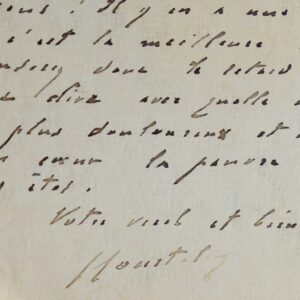 ! Il y en a une
c'est la meilleure
donc le retard
dire avec quelle
plus douloureux et
cœur la pauvre
êtes.
Votre vieil et bien